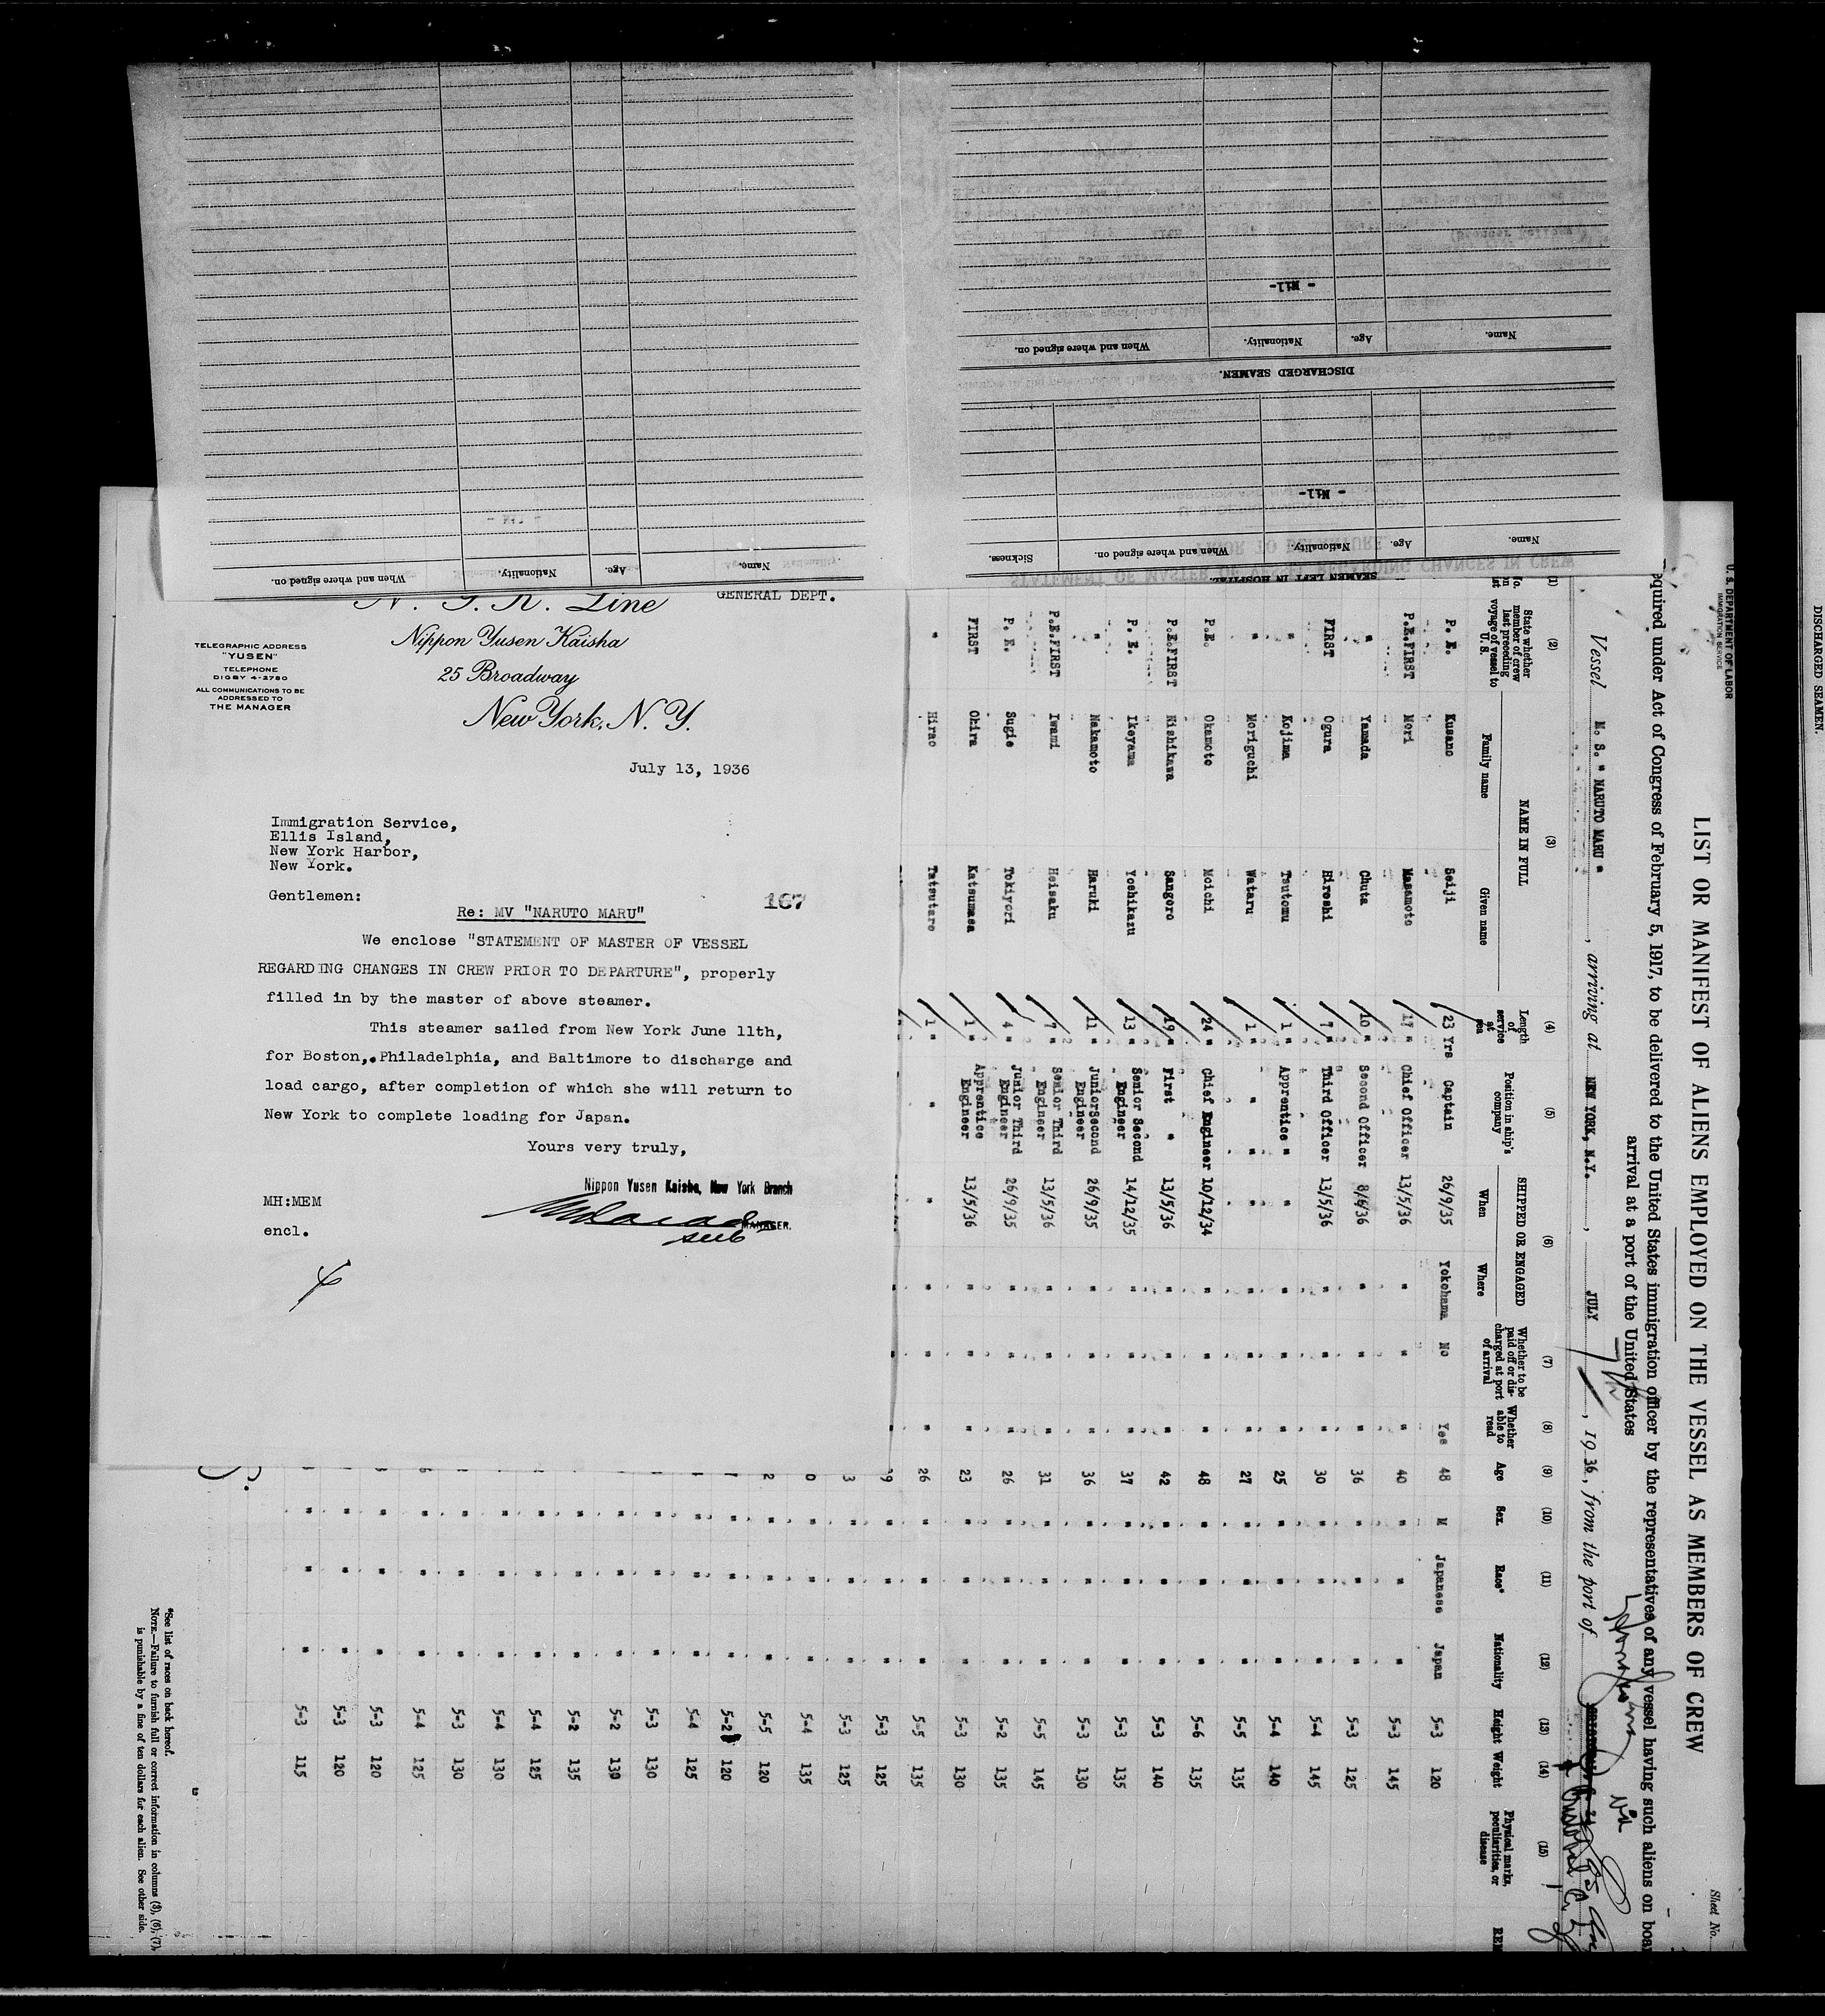 When and where signed on.
Nationality.
Age.
Name.
- Nil -
Name.
Age.
Nationality.
When and where signed on.
- Nil -
DISCHARGED SEAMEN.
Name.
Age.
Nationality.
When and where signed on.
Sickness.
- Nil -
SEAMEN LEFT IN HOSPITAL.
STATEMENT OF MASTER OF VESSEL REGARDING CHANGES IN CREW
PRIOR TO DEPARTURE
N. Y. K. Line
GENERAL DEPT.
TELEGRAPHIC ADDRESS
"YUSEN"
TELEPHONE
DIGBY 4-2780
ALL COMMUNICATIONS TO BE
ADDRESSED TO
THE MANAGER
Nippon Yusen Kaisha
25 Broadway
New York, N. Y.
July 13, 1936
Immigration Service,
Ellis Island,
New York Harbor,
New York.
Gentlemen:
167
Re: MV "NARUTO MARU"
We enclose "STATEMENT OF MASTER OF VESSEL
REGARDING CHANGES IN CREW PRIOR TO DEPARTURE", properly
filled in by the master of above steamer.
This steamer sailed from New York June 11th,
for Boston, Philadelphia, and Baltimore to discharge and
load cargo, after completion of which she will return to
New York to complete loading for Japan.
Yours very truly,
Nippon Yusen Kaisha, New York Branch
MANAGER.
sub
MH:MEM
encl.
U. S. DEPARTMENT OF LABOR
IMMIGRATION SERVICE
Sheet No.
LIST OR MANIFEST OF ALIENS EMPLOYED ON THE VESSEL AS MEMBERS OF CREW
equired under Act of Congress of February 5, 1917, to be delivered to the United States immigration officer by the representatives of any vessel having such aliens on boar
arrival at a port of the United States
Vessel M. S. " NARUTO MARU ", arriving at NEW YORK, N.Y., JULY 7th, 1936, from the port of
(1) (2) (3) (4) (5) (6) (7) (8) (9) (10) (11) (12) (13) (14) (15)
State whether member of crew last preceding voyage of vessel to U. S.
NAME IN FULL
Family name
Given name
Length of service at sea
Position in ship's company
SHIPPED OR ENGAGED
When
Where
Whether to be paid off or discharged at port of arrival
Whether able to read
Age
Sex
Race*
Nationality
Height
Weight
Physical marks, peculiarities, or disease
P. E. Kusano Seiji 23 Yrs Captain 26/9/35 Yokohama No Yes 48 M Japanese Japan 5-3 120
P.E.FIRST Mori Masamoto 17 " Chief Officer 13/5/36 " " " 40 " " " 5-3 145
" Yamada Chuta 10 " Second Officer 8/6/36 " " " 36 " " " 5-3 125
FIRST Ogura Hiroshi 7 " Third Officer 13/5/36 " " " 30 " " " 5-4 145
" Kojima Tsutomu 1 " Apprentice " " " " " 25 " " " 5-4 140
" Moriguchi Wataru 1 " " " " " " " 27 " " " 5-5 135
P.E. Okamoto Moichi 24 " Chief Engineer 10/12/34 " " " 48 " " " 5-6 135
P.E.FIRST Nishikawa Sangoro 19 " First " 13/5/36 " " " 42 " " " 5-3 140
P. E. Ikeyama Yoshikazu 13 " Senior Second Engineer 14/12/35 " " " 37 " " " 5-3 135
" Nakamoto Haruki 11 " Junior Second Engineer 26/9/35 " " " 36 " " " 5-3 130
P.E.FIRST Iwami Heisaku 7 " Senior Third Engineer 13/5/36 " " " 31 " " " 5-5 145
P. E. Sugie Tokiyori 4 " Junior Third Engineer 26/9/35 " " " 26 " " " 5-2 135
FIRST Ohira Katsumasa 1 " Apprentice Engineer 13/5/36 " " " 23 " " " 5-3 130
" Hirao Tatsutaro 1 " " " " " " 26 " " " 5-5 135
" " " 5-3 125
" " " 5-3 125
" " " 5-4 135
" " " 5-5 120
" " " 5-2 120
" " " 5-4 125
" " " 5-3 130
" " " 5-2 130
" " " 5-2 135
" " " 5-4 125
" " " 5-4 130
" " " 5-3 130
" " " 5-4 125
" " " 5-3 120
" " " 5-3 120
" " " 5-3 115
*See list of races on back hereof.
NOTE.—Failure to furnish full or correct information in columns (3), (6), (7),
is punishable by a fine of ten dollars for each alien. See other side.
DISCHARGED SEAMEN.